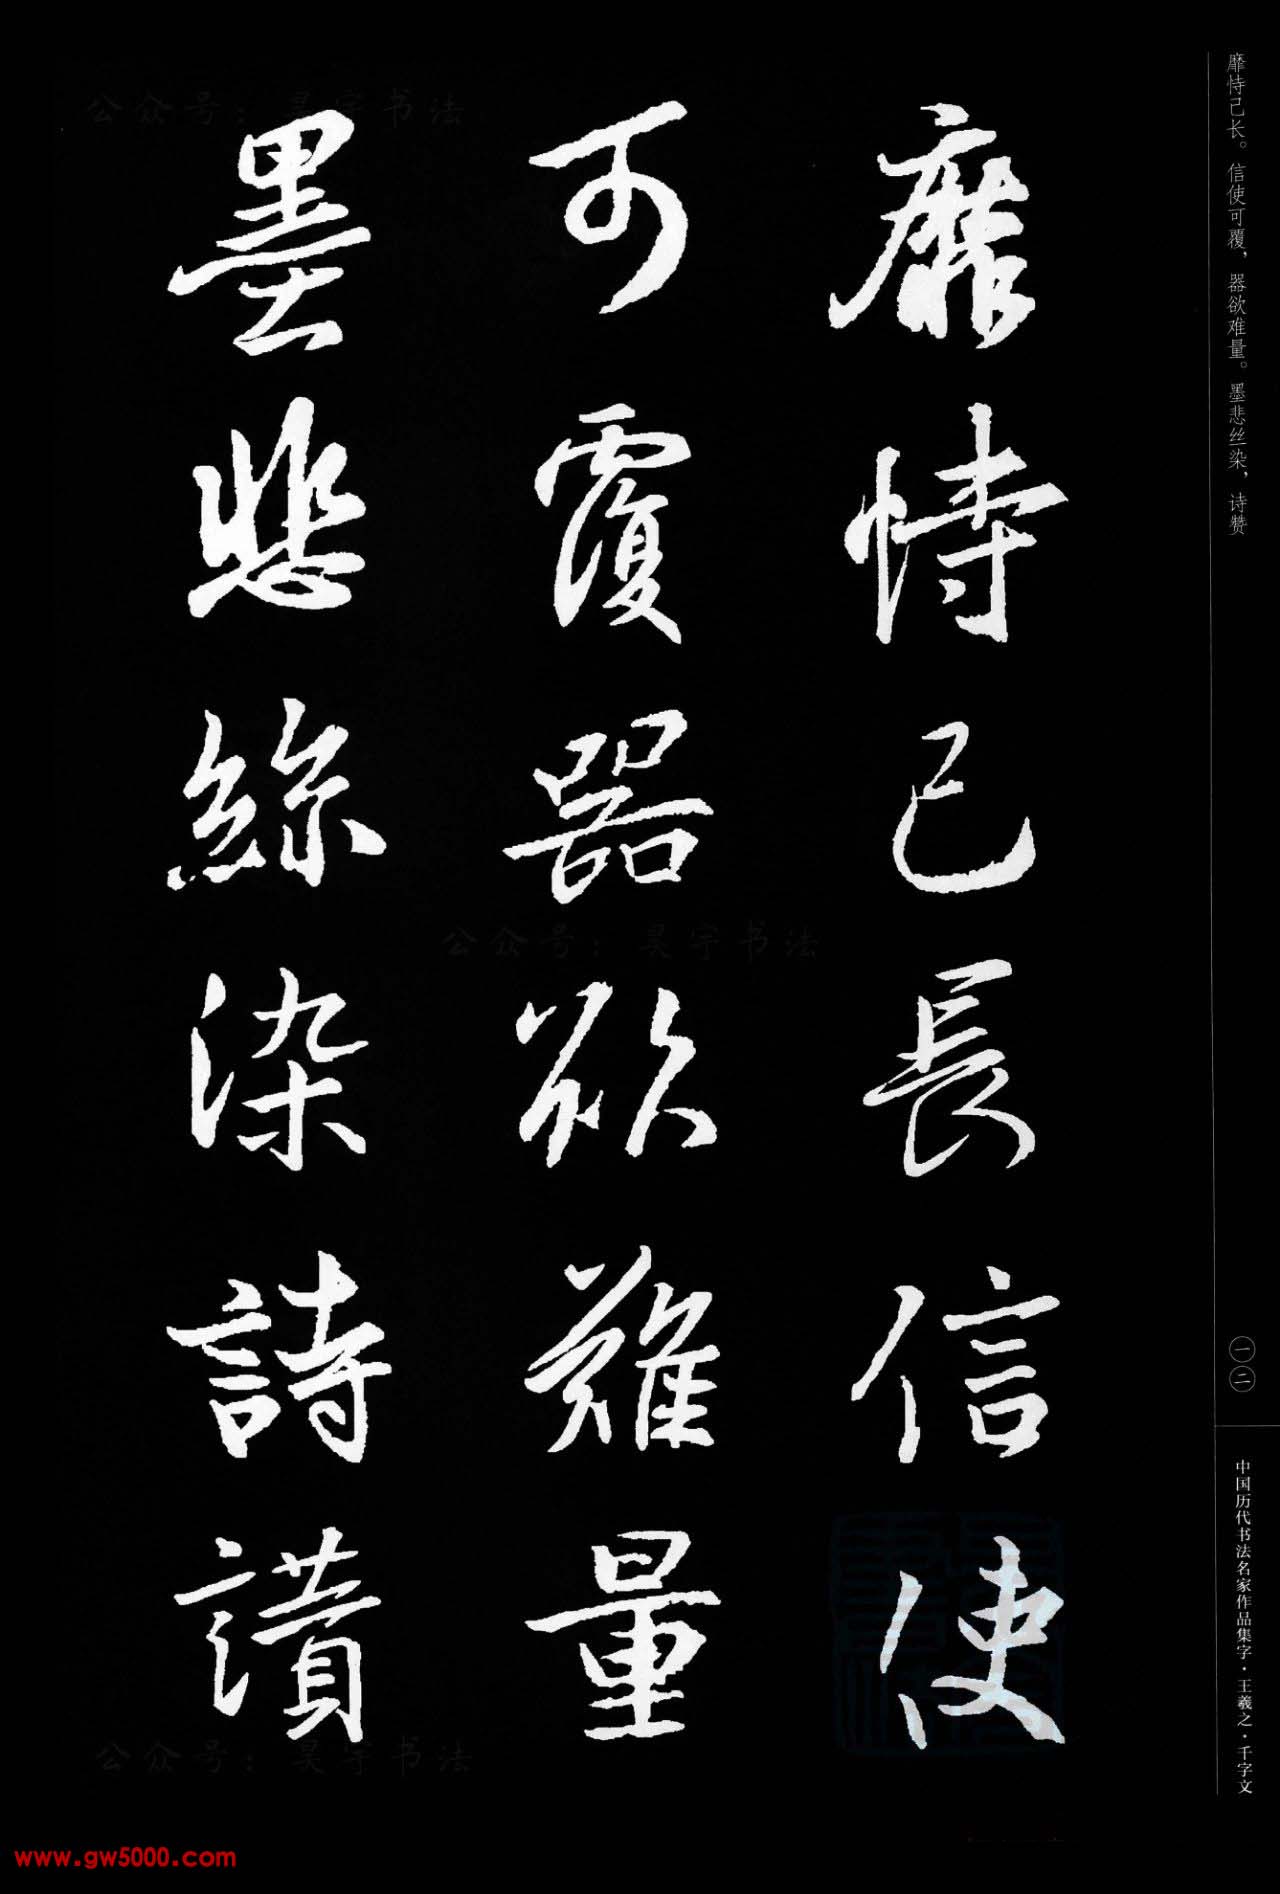 靡恃己長信使
可覆器欲難量
墨悲絲染詩讚
靡恃己长。信使可覆，器欲难量。墨悲丝染，诗赞
一二
中国历代书法名家作品集字·王羲之·千字文
公众号：昊宇书法
公众号：昊宇书法
公众号：昊宇书法
www.gw5000.com